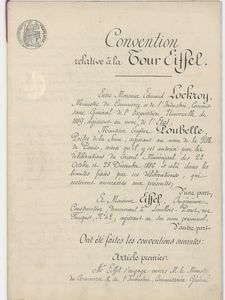 Convention
relative à la Tour Eiffel.
Entre Monsieur Edouard Lockroy,
Ministre du Commerce et de l'Industrie, Commis-
saire Général de l'Exposition Universelle de
1889, agissant au nom de l'Etat,
Monsieur Eugène Poubelle,
Préfet de la Seine, agissant au nom de la Ville
de Paris, ainsi qu'il y est autorisé par les
délibérations du Conseil Municipal des 22
Octobre et 1886 et cela dans les
limites fixées par ces délibérations, qui
resteront annexées aux présentes,
D'une part,
Et Monsieur Eiffel, Ingénieur-
Constructeur demeurant à Levallois-Perret, rue
Fouquet, agissant en son nom personnel
D'autre part.
Ont été faites les conventions suivantes:
Article premier
Mr Eiffel s'engage envers M. le Ministre
du Commerce et de l'Industrie, Commissaire Général